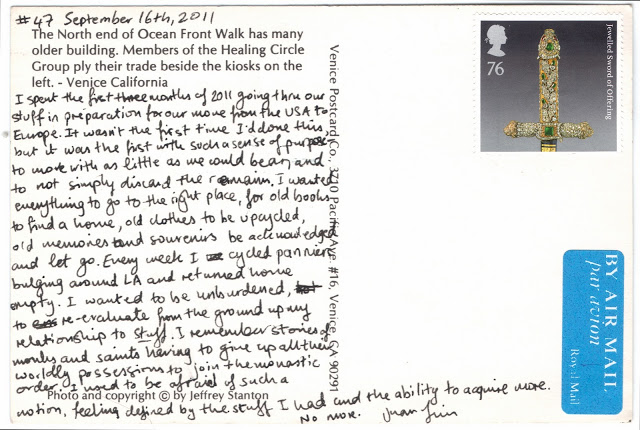 #47 September 16th, 2011
The North end of Ocean Front Walk has many
older building. Members of the Healing Circle
Group ply their trade beside the kiosks on the
left. - Venice California
I spent the first three months of 2011 going thru our
stuff in preparation for our move from the USA to
Europe. It wasn't the first time I'd done this,
but it was the first with such a sense of purpose
to move with as little as we could bear, and
to not simply discard the remains. I wanted
everything to go to the right place, for old books
to find a home, old clothes to be upcycled,
old memories and souvenirs be acknowledged
and let go. Every week I cycled panniers
bulging around LA and returned home
empty. I wanted to be unburdened,
to re-evaluate from the ground up my
relationship to stuff. I remember stories of
monks and saints having to give up all their
worldly possessions to join the monastic
order. I used to be afraid of such a
notion, feeling defined by the stuff I had and the ability to acquire more.
No more.
Photo and copyright © by Jeffrey Stanton
Venice Postcard Co., 3710 Pacific Ave. #16, Venice, CA 90291
76
Jewelled Sword of Offering
BY AIR MAIL
par avion
Royal Mail